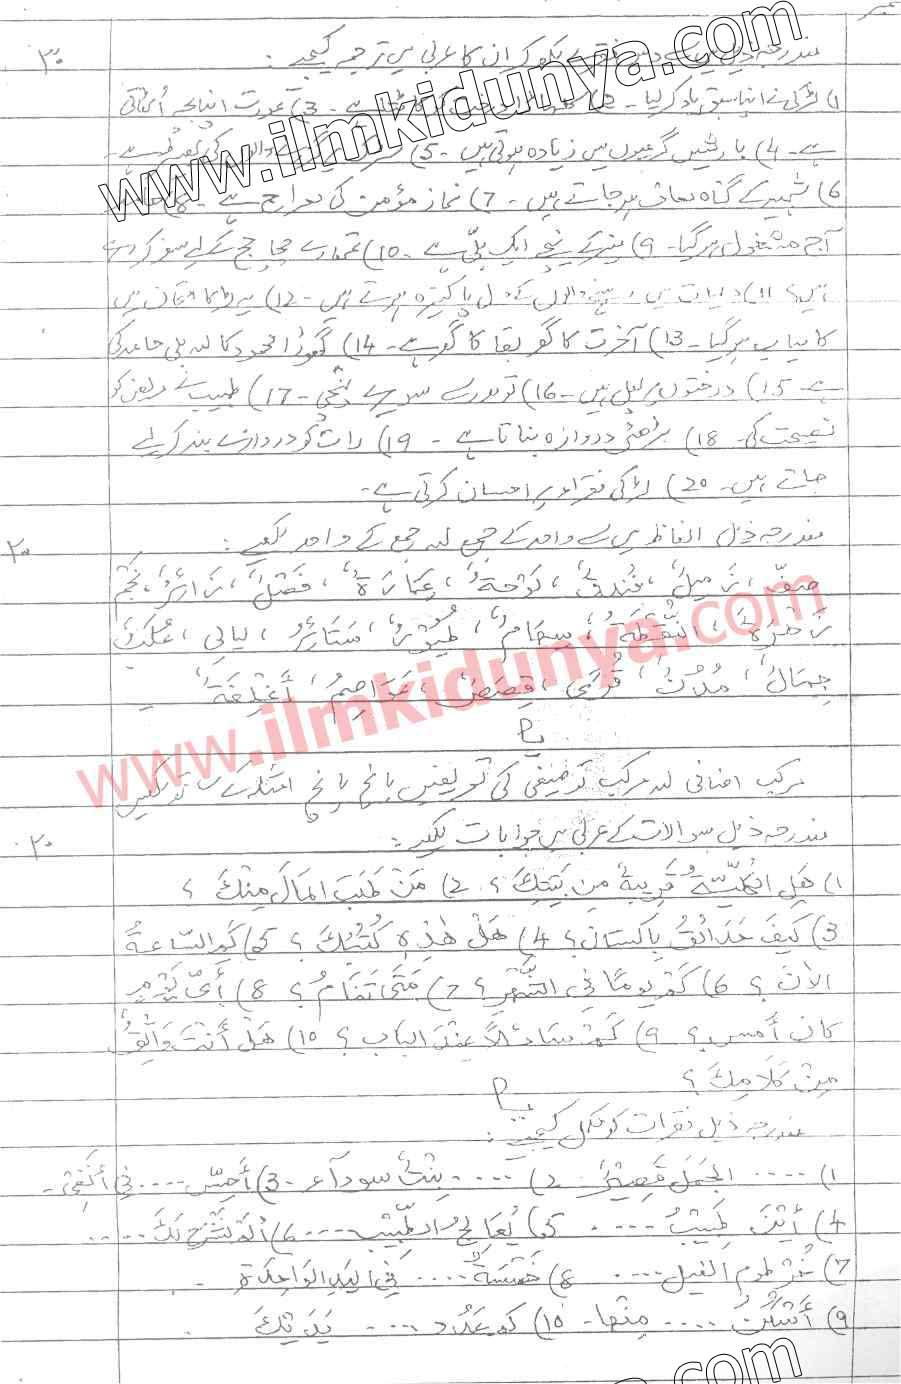 نمبر
مندرجہ ذیل میں سے دس فقرے لکھ کر ان کا عربی میں ترجمہ کیجیے :
۳۰
1) لڑکی نے اپنا سبق یاد کر لیا۔ 2) ہے۔ 3) عورت اپنا بچہ اٹھاتی
ہے۔ 4) بارشیں گرمیوں میں زیادہ ہوتی ہیں۔ 5) کی ہے۔
6) شہید کے گناہ معاف ہو جاتے ہیں۔ 7) نماز مؤمن کی معراج ہے۔ 8)
آج مشغول ہو گیا۔ 9) میز کے نیچے ایک بلی ہے۔ 10) تمہارے چچا حج کے لیے سفر کر رہے
ہیں؟ 11) دیہات میں رہنے والوں کے دل پاکیزہ ہوتے ہیں۔ 12) میرا بھائی امتحان میں
کامیاب ہو گیا۔ 13) آخرت کا گھر بقا کا گھر ہے۔ 14) گھوڑا محمود کا اور بلی حامد کی
ہے۔ 15) درختوں پر پھل ہیں۔ 16) تو مدرسے سویرے پہنچی۔ 17) طبیب نے مریض کو
نصیحت کی۔ 18) بڑھئی دروازہ بناتا ہے۔ 19) رات کو دروازے بند کر لیے
جاتے ہیں۔ 20) لڑکی فقراء پر احسان کرتی ہے۔
مندرجہ ذیل الفاظ میں سے واحد کے جمع اور جمع کے واحد لکھیے :
۲۰
صَفّ، زَمِيلٌ، فُنْدُقٌ، لَوْحَةٌ، عِمَارَةٌ، فَصْلٌ، زَائِرٌ، نَجْمٌ
زَهْرَةٌ، النُّقْطَةُ، سِهَامٌ، طُيُورٌ، سَتَائِرُ، لیالی،
جِمَالٌ، مُدُنٌ، قُرًى، قِصَصٌ، عَوَاصِمُ، أَغْلِفَةٌ
یا
مرکب اضافی اور مرکب توصیفی کی تعریفیں پانچ پانچ امثلہ کے ساتھ لکھیں
مندرجہ ذیل سوالات کے عربی میں جوابات لکھیے :
۲۰
1) هَلِ الْكُلِّيَّةُ قَرِيبَةٌ من بَيْتِكَ؟ 2) مَنْ طَلَبَ المَالَ مِنْكَ ؟
3) كَيْفَ حَدَائِقُ باكستان؟ 4) هَلْ هٰذِهٖ كُتُبُكَ ؟ 5) كَمِ السَّاعَةُ
الآنَ ؟ 6) كَمْ يومًا فِي الشَّهْرِ؟ 7) مَتَى تَنَامُ ؟ 8) أَيُّ يَوْمٍ
كان أَمْسِ؟ 9) كَمْ سَائلاً عِنْدَ الباب ؟ 10) هَلْ أَنْتَ وَاثِقٌ
مِنْ كَلَامِكَ ؟
یا
مندرجہ ذیل فقرات کو مکمل کیجیے :
1) .... الجَمَلِ قَصِيرٌ 2) .... بِنْتٌ سوداء 3) أُحِسُّ .... فِي أَنْفِي۔
4) أَيْنَ طَبِيبُ .... 5) يُعَالِجُ الطَّبِيبُ .... 6) أَلَمْ نَشْرَحْ لَكَ ....
7) خُرْطُومُ الفِيلِ .... 8) خَمْسَةُ .... فِي الْيَدِ الْوَاحِدَةِ .
9) أَشْكُرُ .... مِنْهَا۔ 10) كَمْ عَدَدُ .... يَدَيْكَ .
www.ilmkidunya.com
www.ilmkidunya.com